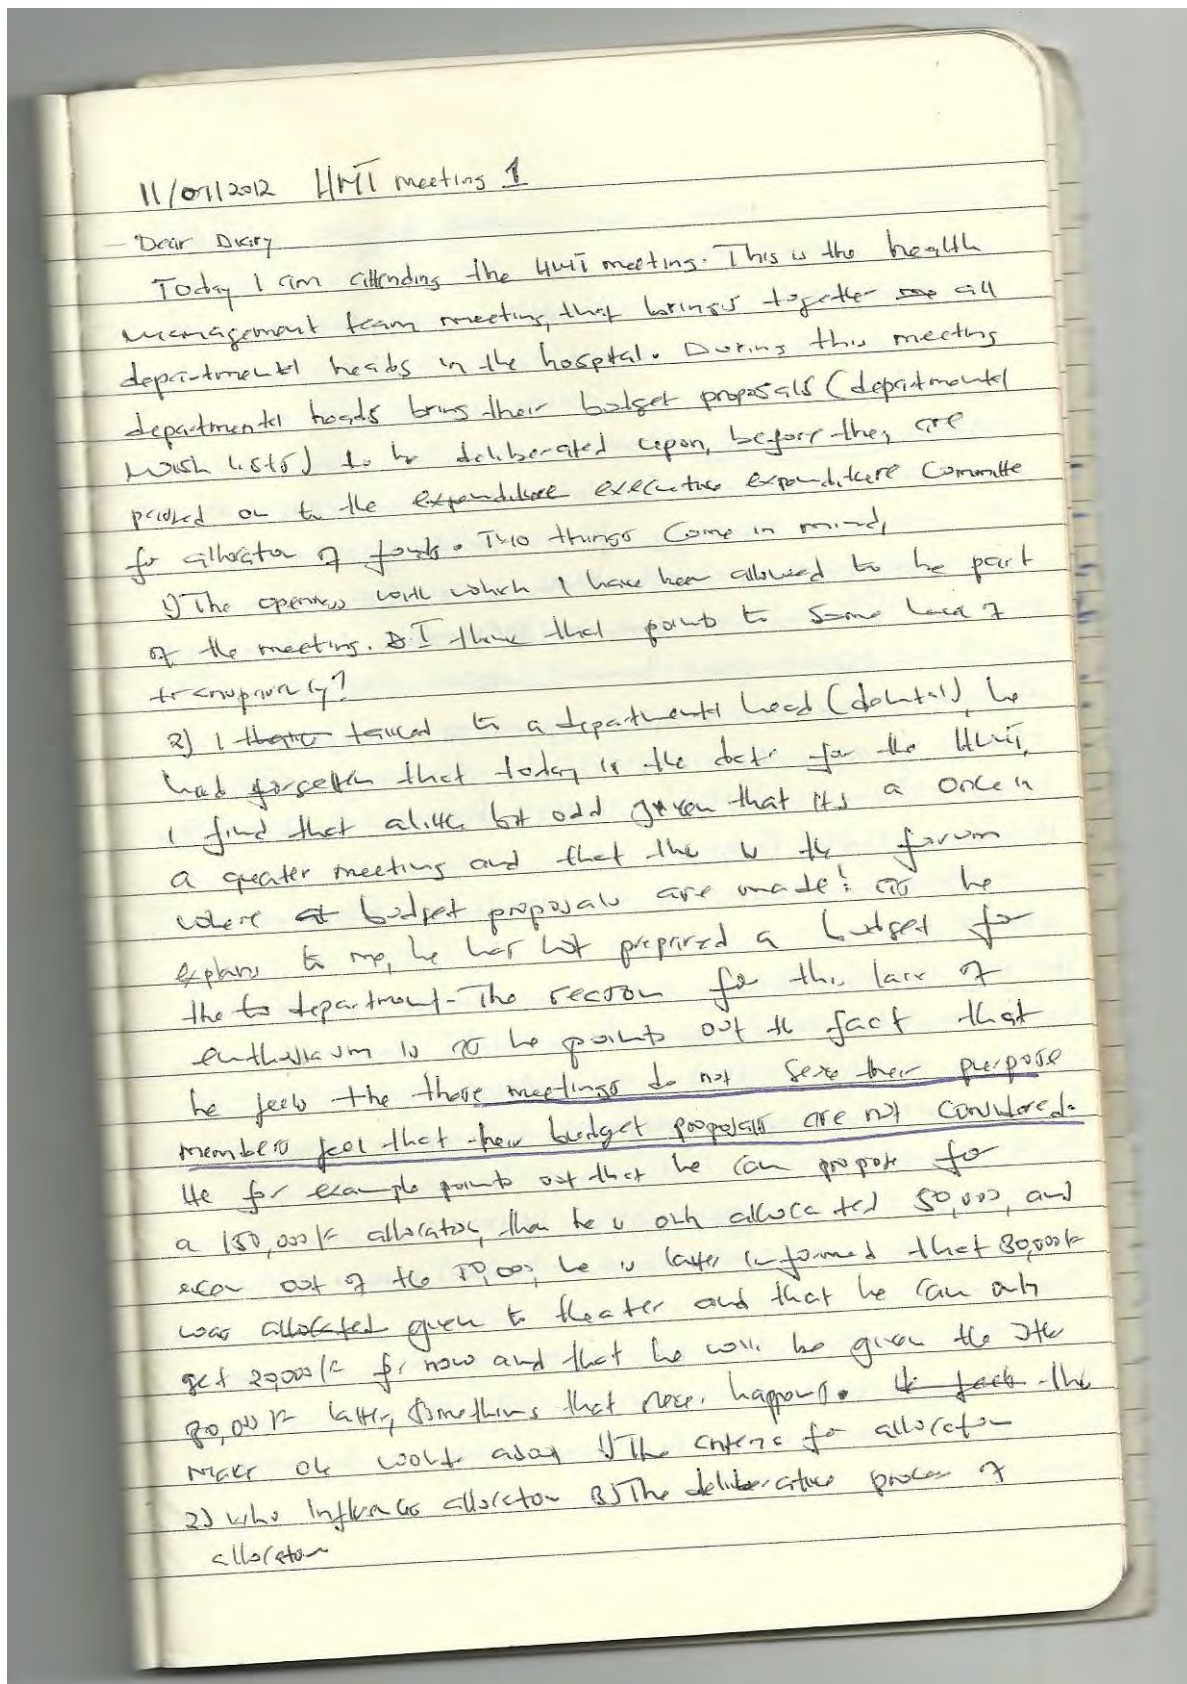 11/07/2012 HMT meeting 1
Dear Diary
Today I am attending the HMT meeting. This is the health
management team meeting, that brings together all
departmental heads in the hospital. During this meeting
departmental heads bring their budget proposals (departmental
wish lists) to be deliberated upon, before they are
passed on to the expenditure executive expenditure Committe
for allocation of funds. Two things come in mind,
1) The openness with which I have been allowed to be part
of the meeting. I think that points to some level of
transparency?
2) I talked to a departmental head (dental), he
had forgotten that today is the date for the HMT,
I find that a little bit odd given that its a once in
a quater meeting and that this is the forum
where budget proposals are made! As he
explains to me, he has not prepared a budget for
the department. The reason for this lack of
enthusiasm is as he points out the fact that
he feels the these meetings do not serve their purpose
members feel that their budget proposals are not considered.
He for example points out that he can propose for
a 150,000/= allocation, then he is only allocated 50,000, and
even out of the 50,000, he is latter informed that 30,000/=
was allocated given to theater and that he can only
get 20,000/= for now and that he will be given the other
30,000/= latter, something that never happens. The
make ok would 1) The criteria for allocation
2) who influences allocation 3) The deliberative process of
allocation